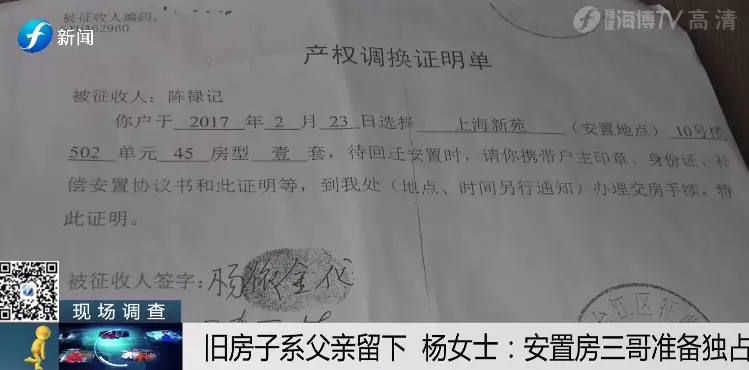 被征收人编码:
新闻
福建海博TV高清
产权调换证明单
被征收人：陈禄记
你户于 2017 年 2 月 23 日选择 上海新苑 （安置地点）10号楼
502 单元 45 房型 壹 套，待回迁安置时，请你携带户主印章、身份证、补
偿安置协议书和此证明等，到我处（地点、时间另行通知）办理交房手续。特
此证明。
被征收人签字:
现场调查
旧房子系父亲留下 杨女士：安置房三哥准备独占